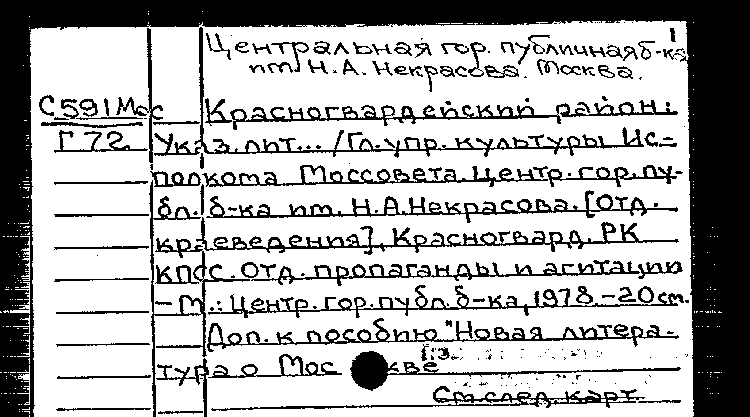 1
Центральная гор. публичная б-ка
им. Н.А. Некрасова. Москва.
С591Мос Красногвардейский район:
Г72 Указ. лит... /Гл. упр. культуры Ис-
полкома Моссовета. Центр. гор. пу-
бл. б-ка им. Н.А. Некрасова. [Отд.
краеведения], Красногвард. РК
КПСС. Отд. пропаганды и агитации
– М.: Центр. гор. публ. б-ка, 1978. – 20 см.
Доп. к пособию "Новая литера-
тура о Москве
См. след. карт.